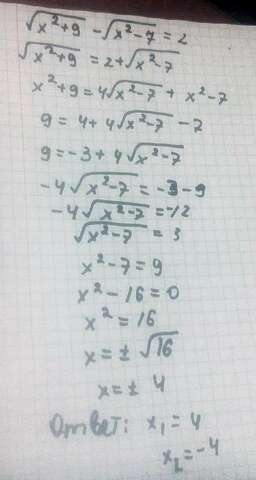 √x²+9 - √x²-7 = 2
√x²+9 = 2+√x²-7
x²+9 = 4√x²-7 + x²-7
9 = 4+4√x²-7 -7
9 = -3+4√x²-7
-4√x²-7 = -3-9
-4√x²-7 = -12
√x²-7 = 3
x²-7 = 9
x²-16 = 0
x² = 16
x = ± √16
x = ± 4
Ответ: x₁ = 4
x₂ = -4